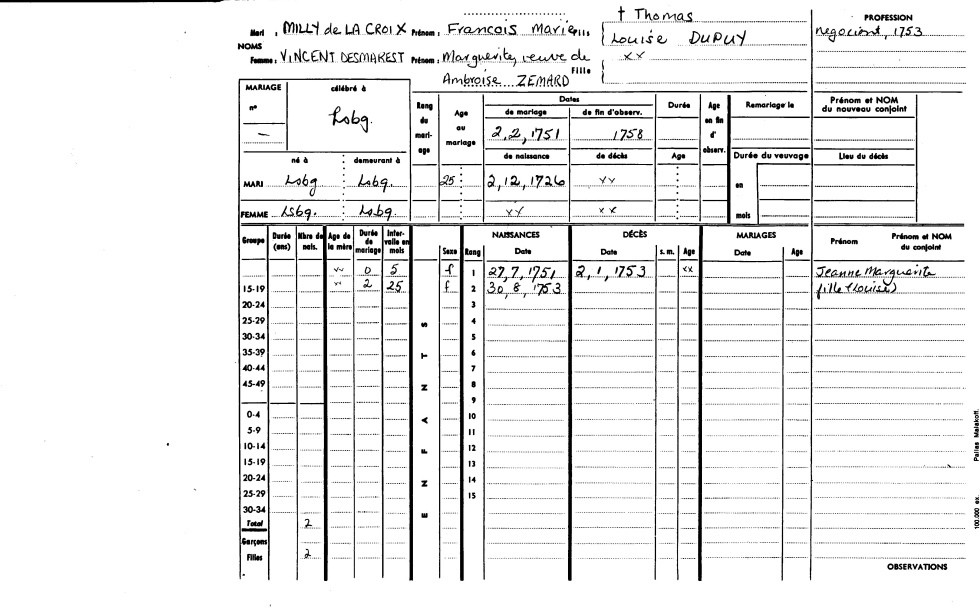 † Thomas
PROFESSION
Mari : MILLY de LA CROIX Prénom : Francois Marie Fils Louise DUPUY
negociant, 1753
NOMS
Femme : VINCENT DESMAREST Prénom : Marguerite, veuve de xx
Ambroise ZEMARD Fille
MARIAGE célébré à
n° Lsbg.
—
né à demeurant à
MARI Lsbg Lsbg.
FEMME Lsbg. Lsbg.
Rang du mari-age
Age au mariage
25
Dates
de mariage de fin d'observ.
2, 2, 1751 1758
de naissance de décès
2, 12, 1726 xx
xx xx
Durée
Age
Age en fin d' observ.
Remariage le
Durée du veuvage
en
mois
Prénom et NOM
du nouveau conjoint
Lieu du décès
Groupe Durée (ans) Nbre de nais. Age de la mère Durée de mariage Inter-valle en mois Sexe Rang NAISSANCES Date DÉCÈS Date s. m. Age MARIAGES Date Age Prénom Prénom et NOM du conjoint
xx 0 5 f 1 27, 7, 1751 2, 1, 1753 xx Jeanne Marguerite
15-19 xx 2 25 f 2 30, 8, 1753 fille (Louise)
20-24 3
25-29 4
30-34 5
35-39 6
40-44 7
45-49 8
9
0-4 10
5-9 11
10-14 12
15-19 13
20-24 14
25-29 15
30-34
Total 2
Garçons
Filles 2
E N F A N T S
OBSERVATIONS
100.000 ex. Pallas Malakoff.